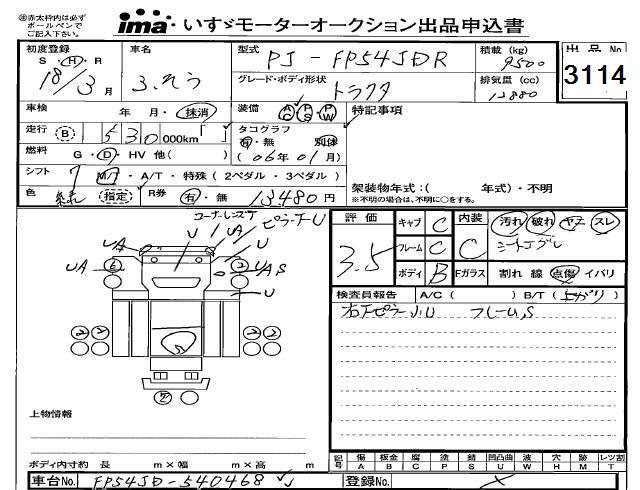 ㊟赤太枠内は必ず
ボールペンで
ご記入下さい。
ima いすゞモーターオークション出品申込書
初度登録
S・H・R
18/3月
車名
型式 PJ-FP54JDR
積載 (kg)
9500
出品No
3114
グレード・ボディ形状 トラクタ
排気量 (cc)
12880
車検 年 月・抹消
装備 AC PS PW
特記事項
走行 B 530 000km
タコグラフ
有・無 別体
(06年01月)
燃料 G・D・HV 他( )
シフト 7 MT・A/T・特殊 (2ペダル・3ペダル)
色 緑 指定
R券 有・無 13480円
架装物年式：( 年式)・不明
※不明の場合は、不明に○をする。
コーナーレンズケ
ピラー下U
U UA U
UA UA,S
U
評価 3.5
キャブ C
フレーム C
ボディ B
内装 C
汚れ 破れ ヤニ スレ
シートコゲ,U
Fガラス 割れ 線 点傷 イバリ
検査員報告 A/C ( ) B/T (上がり)
右下ピラー小U フレームS
上物情報
ボディ内寸約 長 m×幅 m×高 m
記号
傷 A
板金 B
腐 C
塗 P
錆 S
凹凸曲 U
波 W
穴 H
跡 M
レツ割 T
車台No. FP54JD-540468
登録No.